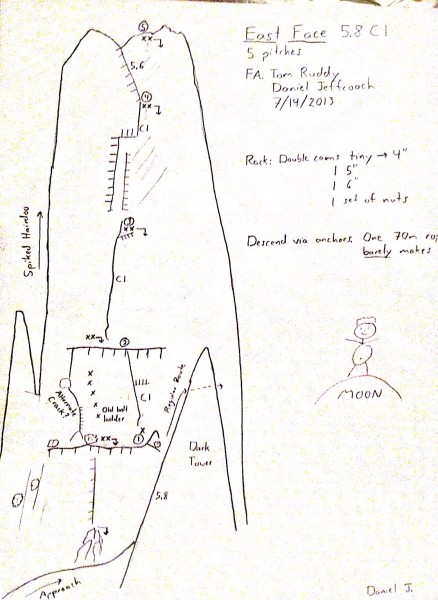 East Face 5.8 C1
5 pitches
FA. Tom Ruddy
Daniel Jeffcoach
7/14/2013
Rack: Double cams tiny → 4"
1 5"
1 6"
1 set of nuts
Descend via anchors. One 70m
barely makes
MOON
Daniel J.
5
xx
5.6
4
xx
C1
3
xx
C1
Spiked Hairdoo
xx
2
Alternate
Crack?
x
x
x
x
Old bolt
ladder
C1
x
xx
1
Regular Route
Dark
Tower
5.8
Approach